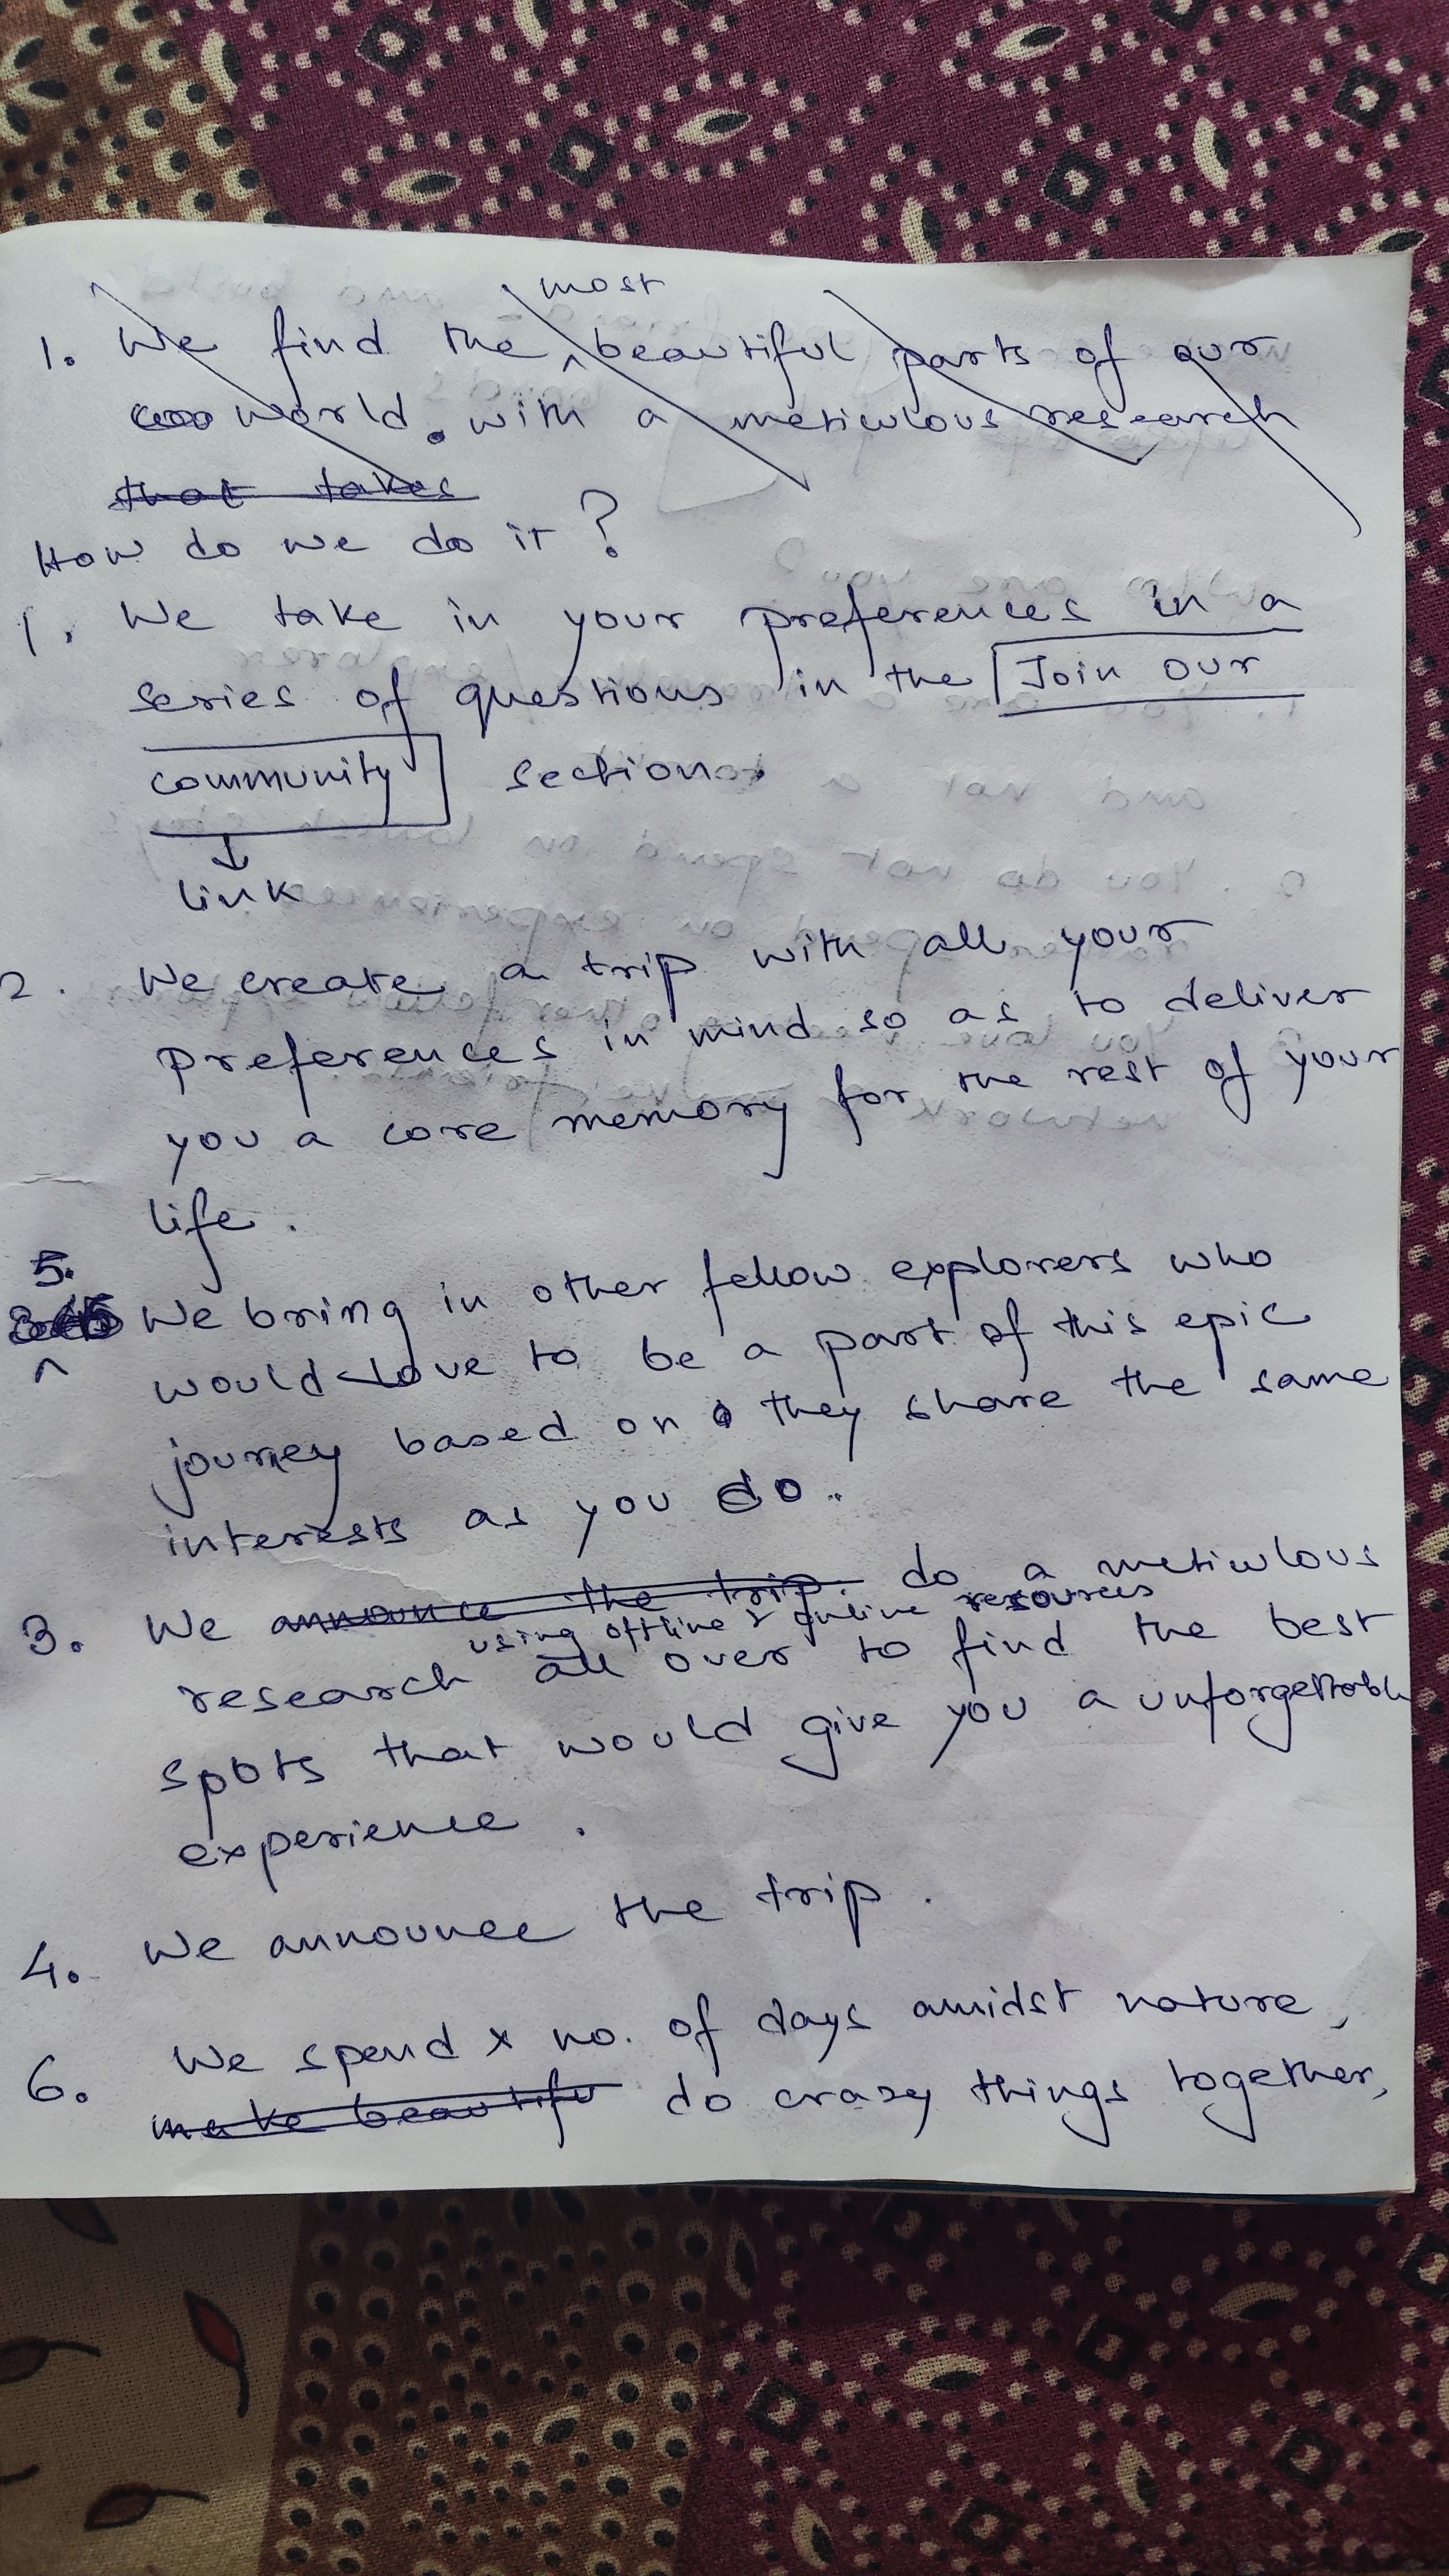 most
1. We find the ^ beautiful parts of our
world. with a meticulous research
that takes
How do we do it?
1. We take in your preferences in a
series of questions in the Join our
community section.
↓
link
2. We create a trip with all your
preferences in mind so as to deliver
you a core memory for the rest of your
life.
5.
^ We bring in other fellow explorers who
would love to be a part of this epic
journey based on they share the same
interests as you do.
3. We announce the trip. do a meticulous
using offline & online resources
research all over to find the best
spots that would give you a unforgettable
experience.
4. We announce the trip.
6. We spend x no. of days amidst nature,
make beautifu do crazy things together,